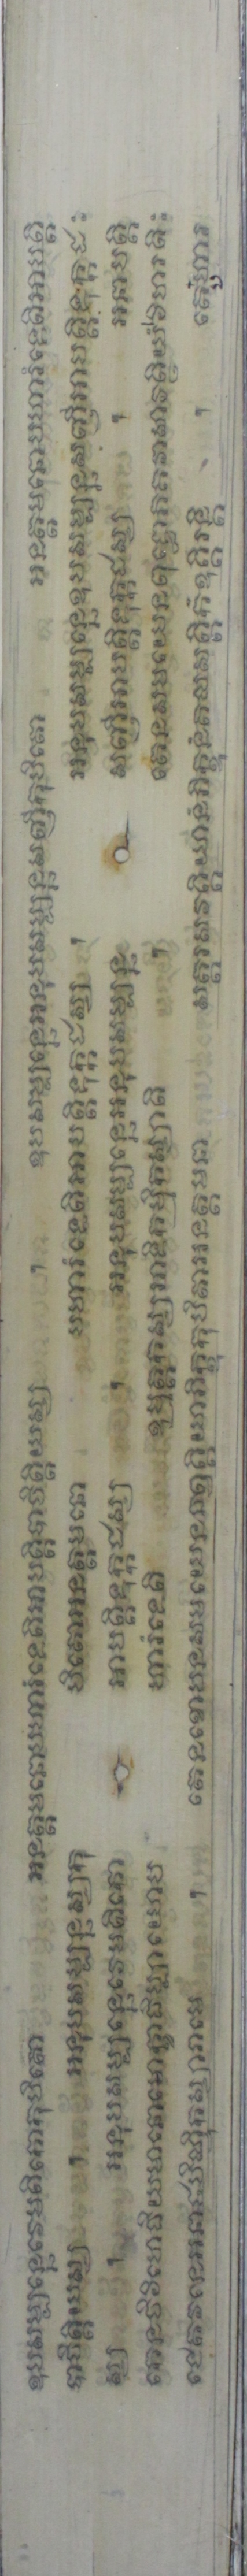 ឧបសម្បន្នេវេមតិកោកុបិតោ អនត្តមនោបហារំទេតិអាបត្តិបាចិត្តិយស្ស ។ ឧបសម្បន្នេអនុបសម្បន្នសញីកុបិតោ អនត្តមនោបហារំទេតិអាបត្តិ
បាចិត្តិយស្ស ។ អនុបសម្បន្នស្សកុ បិតោអនត្តមនោ បហារំទេតិអាបត្តិទុក្កដស្ស ។ អនុបសម្បន្នេឧបសម្បន្នសញីអាបត្តិទុក្កដ
ស្ស ។ អនុបសម្បន្នេវេមតិកោ អាបត្តិទុក្កដស្ស ។ អនុបសម្បន្នេអនុបសម្បន្ន សញីអាបត្តិទុក្កដស្ស ។ អនាបត្តិ
កេនចិវិហេឋិយមានោមោក្ខាធិប្បាយោប ហារំទេតិ ឧម្មត្តកស្សអាទិកម្មិកស្សាតិ ។ តេនសមយេនពុទ្ធោភគវាសាវត្ថិយំវិហរតិ
ជេតវនេអនាថបិណ្ឌិកស្សារាមេ ។ តេនខោបនសមយេនឆព្វគ្គិយាភិក្ខូកុបិតាអនត្តមនា សត្តរសវគ្គិយានំភិក្ខូនំតលសត្តិកំឧគ្គិរន្តិ ។ តេប្បហារ